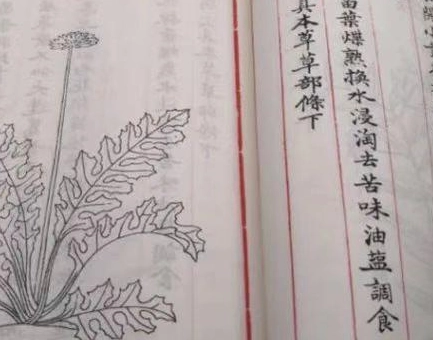 苗葉煠熟換水浸淘去苦味油盐調食
具本草草部條下